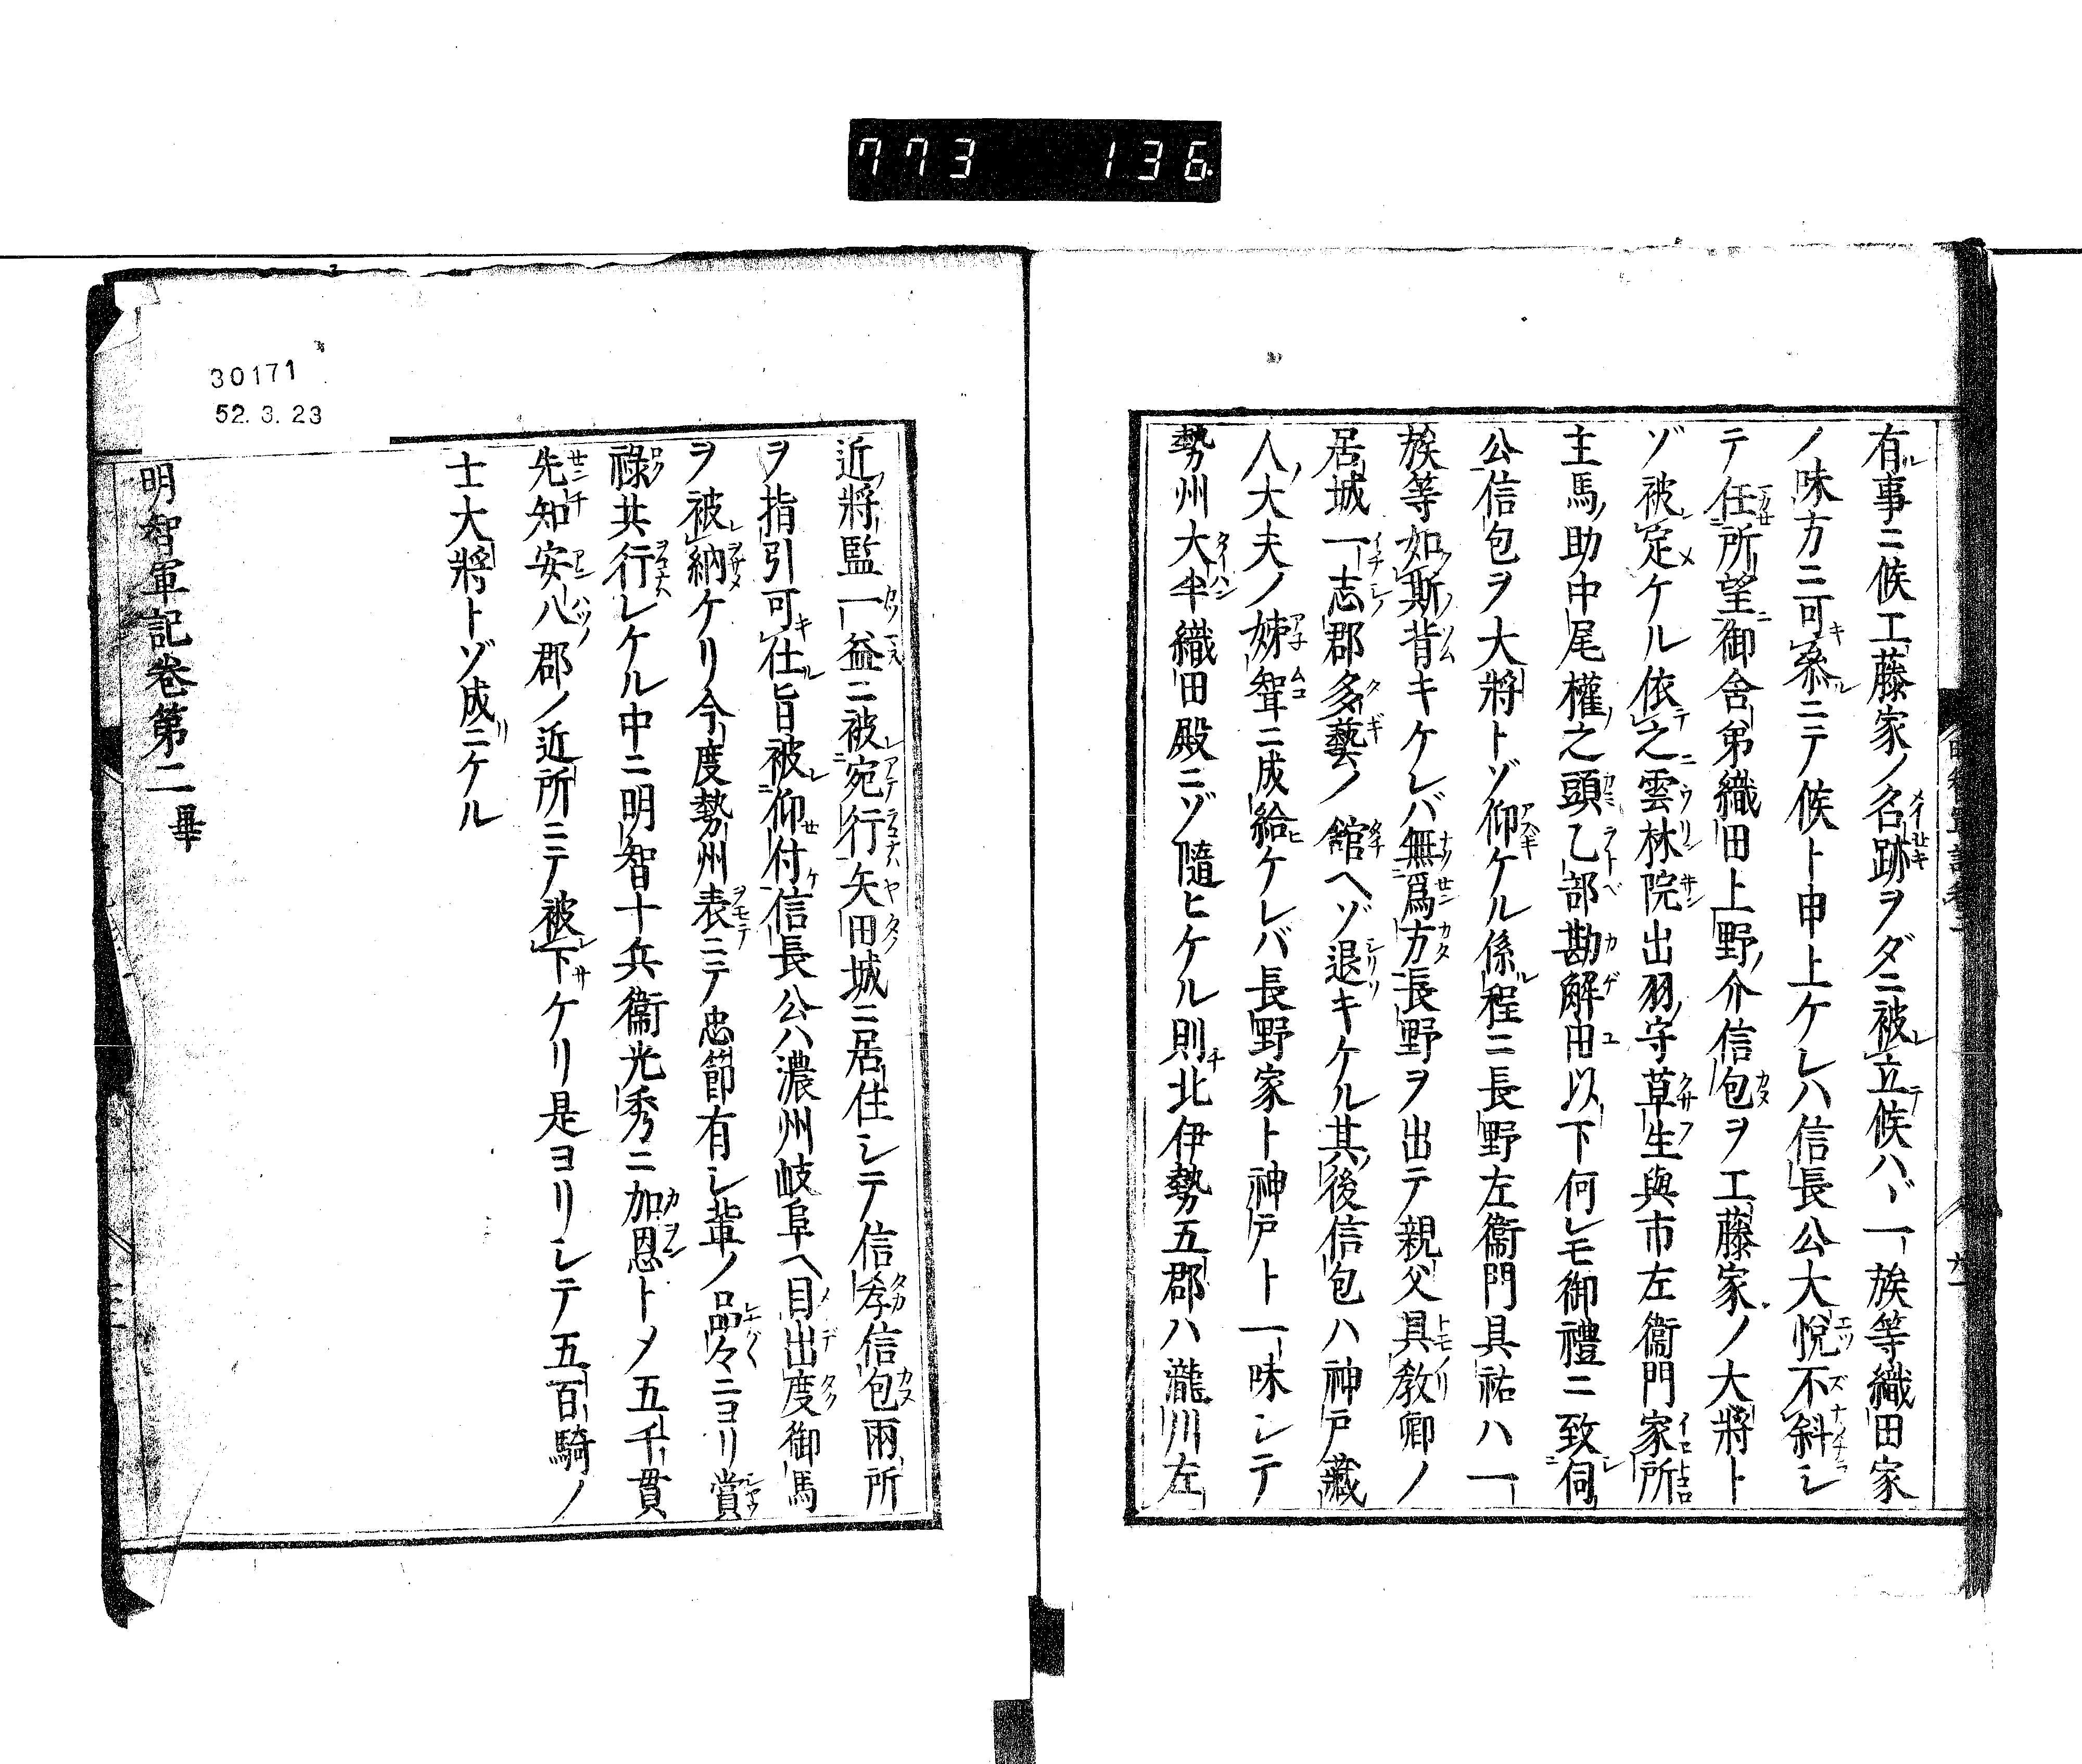 773 136
有事ニ候工藤家ノ名跡ヲダニ被立候ハヾ一族等織田家
ノ味方ニ可參ニテ候ト申上ケレハ信長公大悅不斜シ
テ任所望御舍弟織田上野介信包ヲ工藤家ノ大將ト
ゾ被定ケル依之雲林院出羽守草生與市左衞門家所
主馬助中尾權之頭乙部勘解由以下何レモ御禮ニ致伺
公信包ヲ大將トゾ仰ケル係程ニ長野左衞門具祐ハ一
族等如斯背キケレバ無爲方長野ヲ出テ親父具敎卿ノ
居城一志郡多藝ノ館ヘゾ退キケル其後信包ハ神戸藏
人大夫ノ姉聟ニ成給ケレバ長野家ト神戸ト一味シテ
勢州大半織田殿ニゾ隨ヒケル則北伊勢五郡ハ瀧川左
近將監一益ニ被宛行矢田城ニ居住シテ信孝信包兩所
ヲ指引可仕旨被仰付信長公ハ濃州岐阜ヘ目出度御馬
ヲ被納ケリ今度勢州表ニテ忠節有シ輩ノ品々ニヨリ賞
祿共行レケル中ニ明智十兵衞光秀ニ加恩トメ五千貫
先知安八郡ノ近所ニテ被下ケリ是ヨリシテ五百騎ノ
士大將トゾ成ニケル
明智軍記卷第二畢
30171
52.3.23